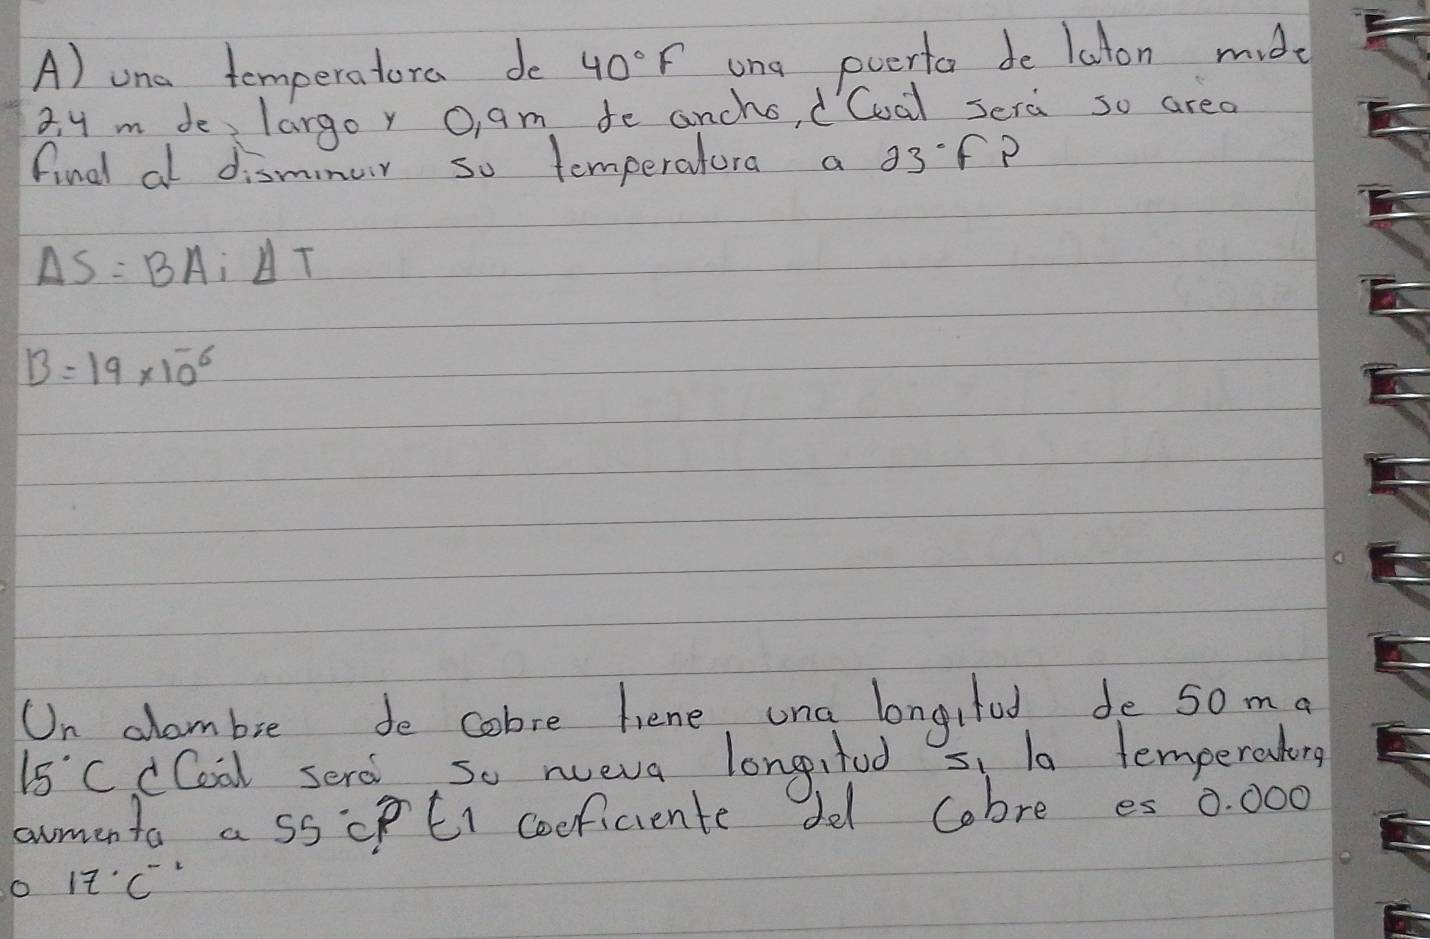 A) una temperatura de 40°F una puerta de laton mide
2,4 m de largo y 0,9m de ancho, ¿Cuál será su area
final al disminuir su temperatura a 23°F?
ΔS = BAi ΔT
B = 19 x 10⁻⁶
Un alambre de cobre tiene una longitud de 50 m a
15°C ¿Cuál será su nueva longitud si la temperatura
aumenta a 55°C? El coeficiente del Cobre es 0.000
0 17°C⁻¹